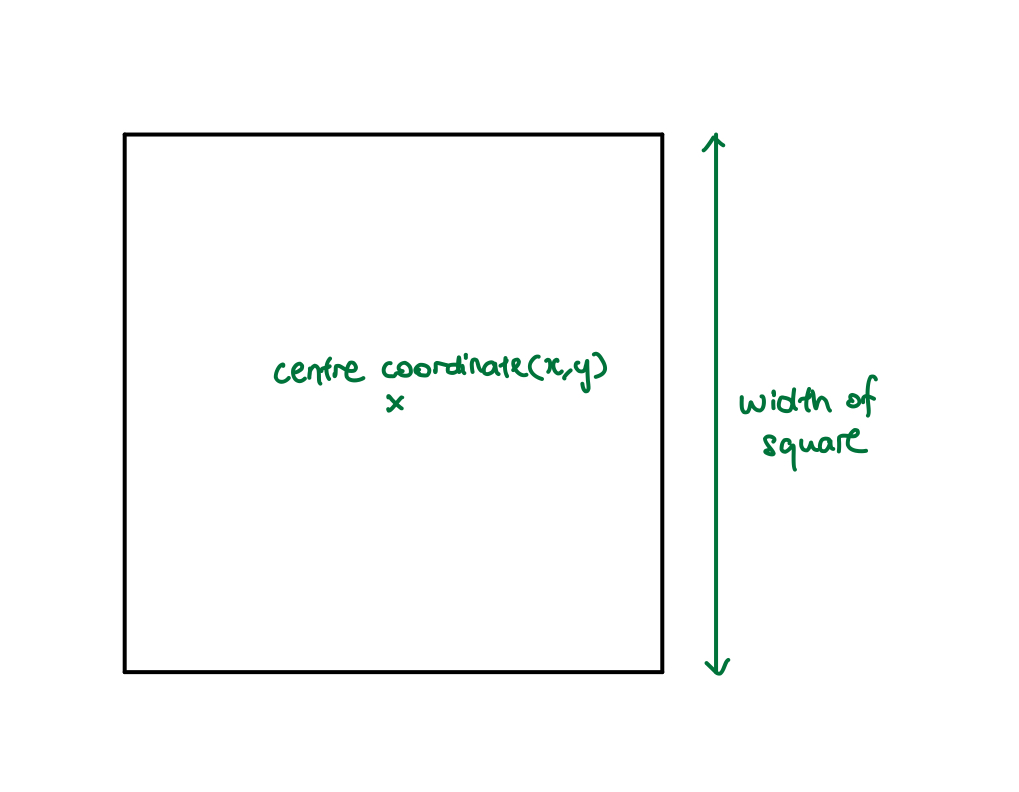 centre coordinate(x,y)
x
width of
square